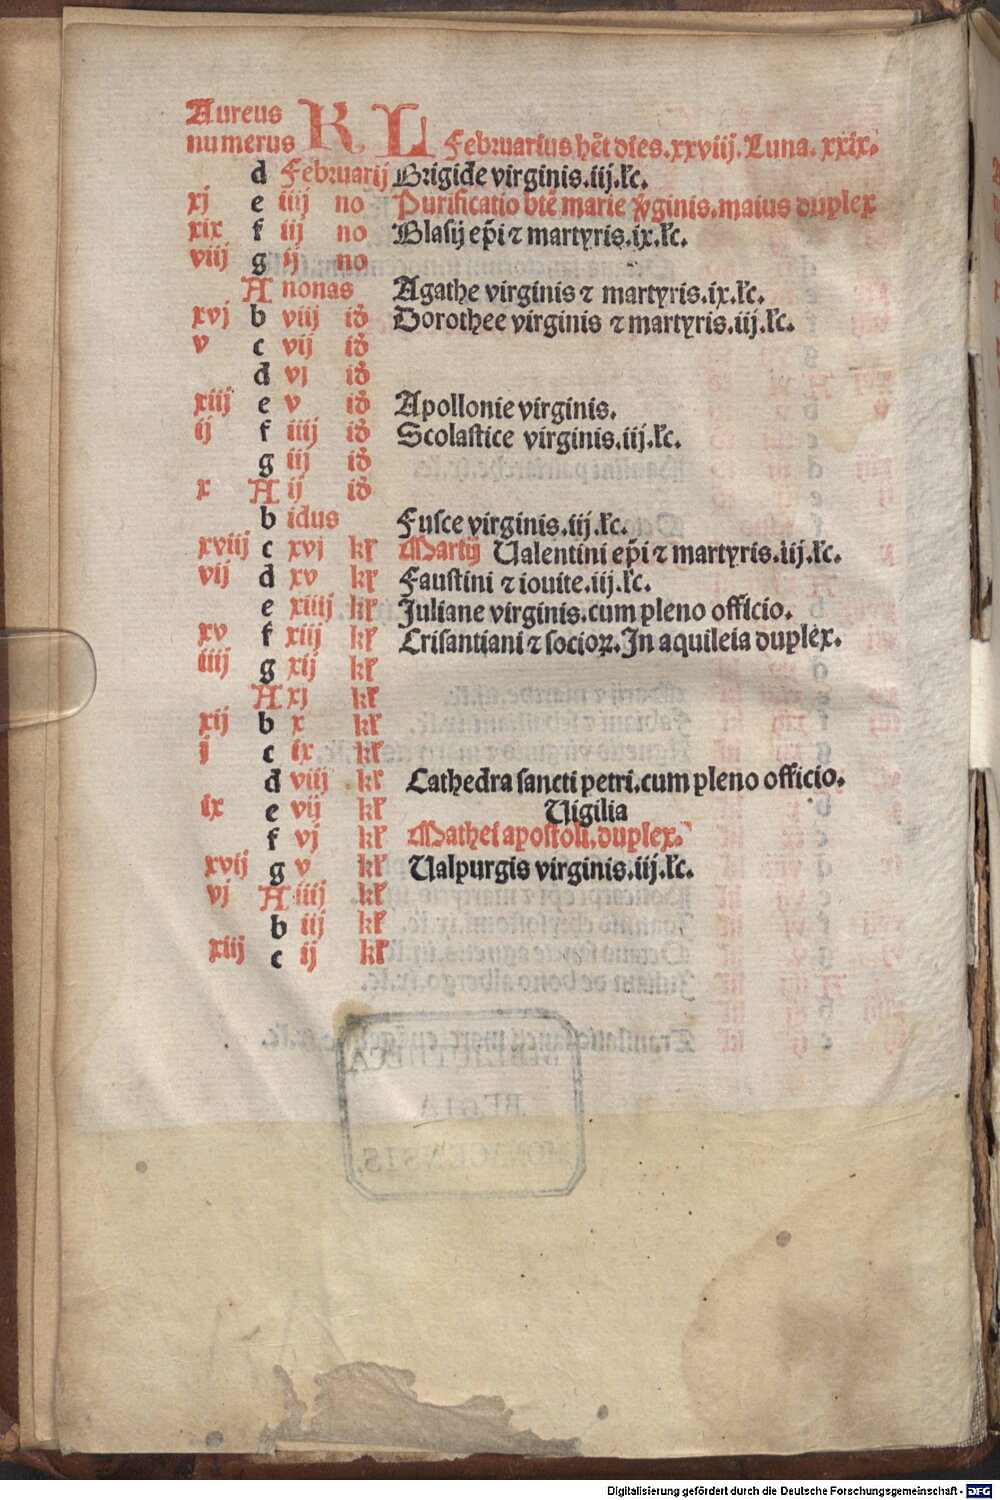 Aureus
numerus KL Februarius hēt dies. xxviij. Luna. xxix.
d Februarij Brigide virginis. iij. lc.
xj e iiij no Purificatio btē marie v̄ginis. maius duplex
xix f iij no Blasij ep̄i ⁊ martyris. ix. lc.
viij g ij no
A nonas Agathe virginis ⁊ martyris. ix. lc.
xvj b viij id Dorothee virginis ⁊ martyris. iij. lc.
v c vij id
d vj id
xiij e v id Apollonie virginis.
ij f iiij id Scolastice virginis. iij. lc.
g iij id
x A ij id
b idus Fusce virginis. iij. lc.
xviij c xvj kl Martij Valentini ep̄i ⁊ martyris. iij. lc.
vij d xv kl Faustini ⁊ iouite. iij. lc.
e xiiij kl Juliane virginis. cum pleno officio.
xv f xiij kl Crisantiani ⁊ socioꝝ. In aquileia duplex.
iiij g xij kl
A xj kl
xij b x kl
j c ix kl
d viij kl Cathedra sancti petri. cum pleno officio.
ix e vij kl Vigilia
f vj kl Mathei apostoli. duplex.
xvij g v kl Valpurgis virginis. iij. lc.
vj A iiij kl
b iij kl
xiij c ij kl
BIBLIOTHECA
REGIA
MONACENSIS.
Digitalisierung gefördert durch die Deutsche Forschungsgemeinschaft - DFG